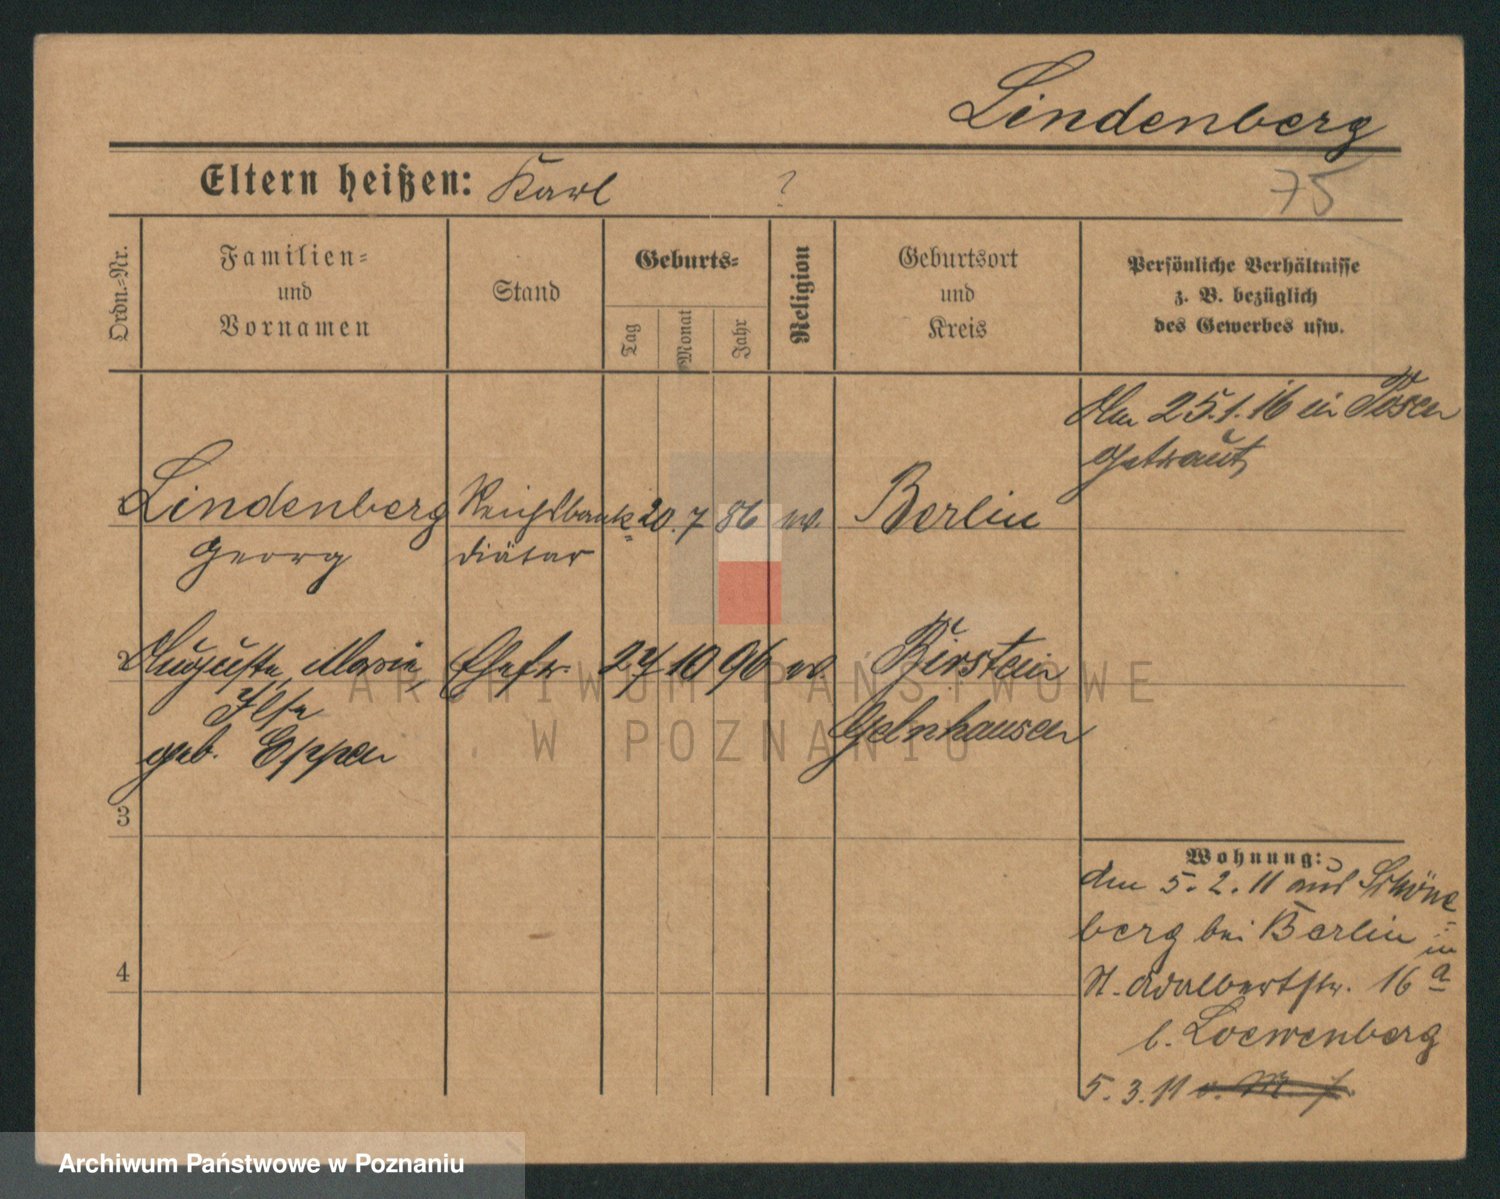 Lindenberg
Eltern heißen: Karl ?
75
Ordn.=Nr.
Familien=
und
Vornamen
Stand
Geburts=
Tag
Monat
Jahr
Religion
Geburtsort
und
Kreis
Persönliche Verhältnisse
z. B. bezüglich
des Gewerbes usw.
Am 25.1.16 in Posen
getraut
Lindenberg Reichsbank= 20. 7 86 ev. Berlin
Georg diätar
2 Auguste, Marie, Ehefr. 27 10 96 ev. Birstein
Ilse
geb. Eppen Gelnhausen
3
4
Wohnung:
den 5. 2. 11 aus Schöne=
berg bei Berlin in
St. Adalbertstr. 16 a
b. Loewenberg
5. 3. 11
ARCHIWUM PAŃSTWOWE
W POZNANIU
Archiwum Państwowe w Poznaniu